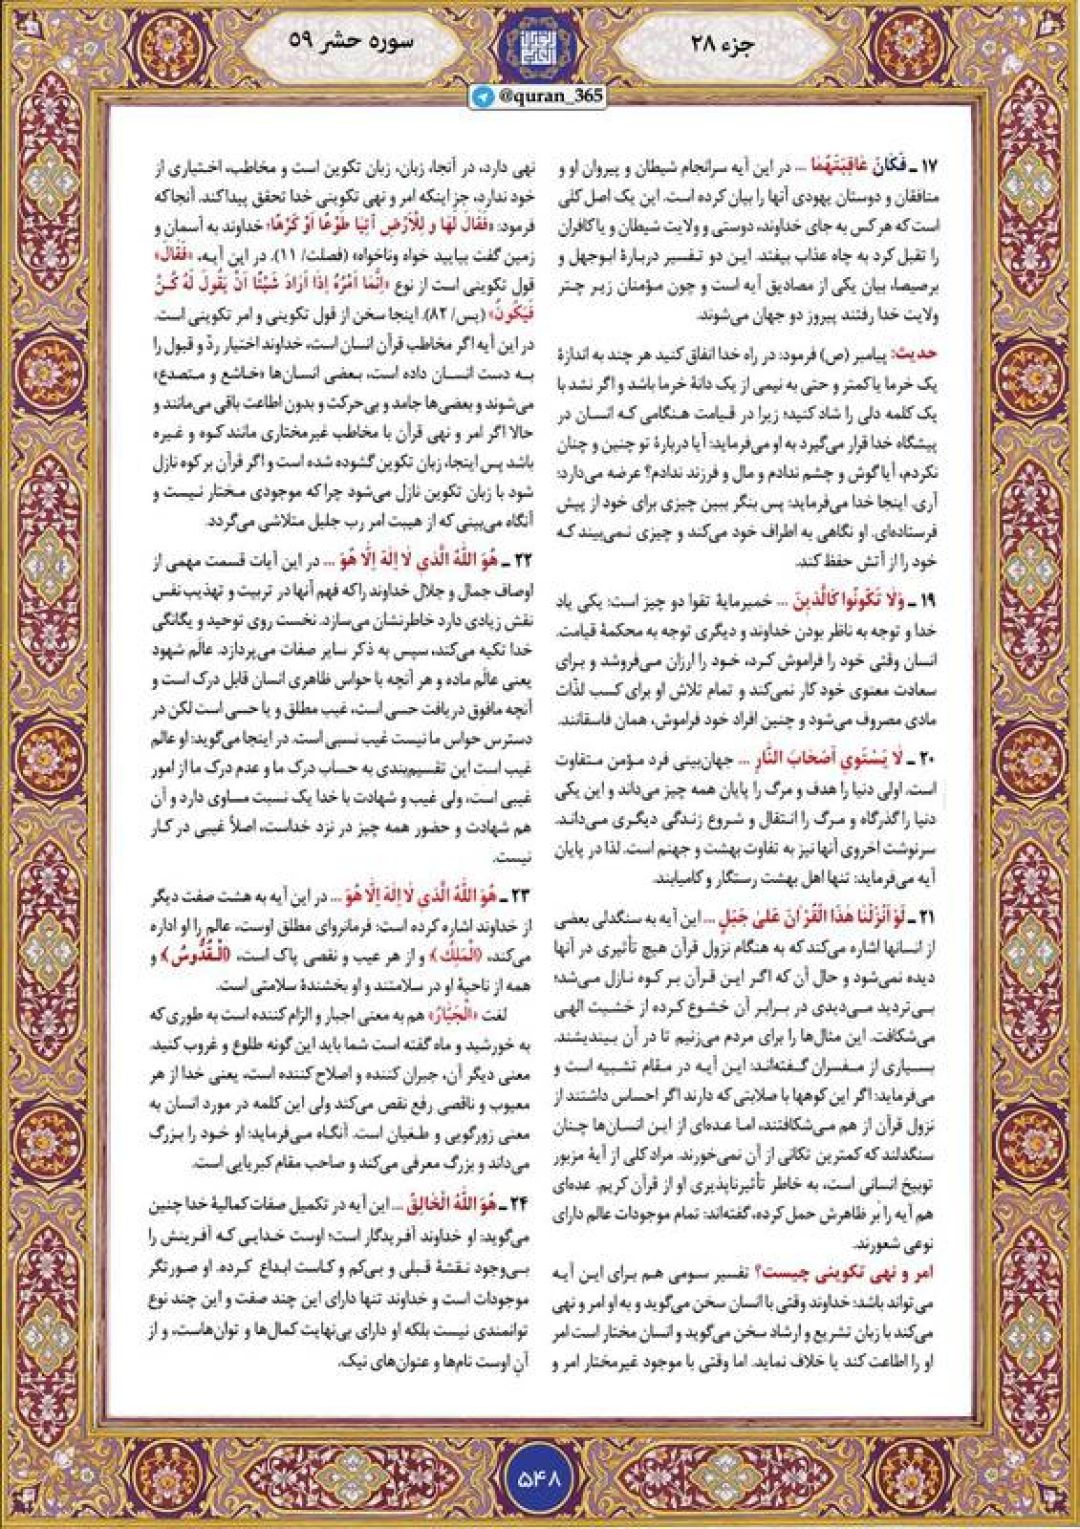 جزء ۲۸
سوره حشر ۵۹
@quran_365
۱۷ ـ فَكَانَ عَاقِبَتَهُمَا ... در این آیه سرانجام شیطان و پیروان او و
منافقان و دوستان یهودی آنها را بیان کرده است. این یک اصل کلی
است که هر کس به جای خداوند، دوستی و ولایت شیطان و یا کافران
را تقبل کرد به چاه عذاب بیفتد. این دو تفسیر دربارهٔ ابوجهل و
برصیصا، بیان یکی از مصادیق آیه است و چون مؤمنان زیر چتر
ولایت خدا رفتند پیروز دو جهان می‌شوند.
حدیث: پیامبر (ص) فرمود: در راه خدا انفاق کنید هر چند به اندازهٔ
یک خرما یا کمتر و حتی به نیمی از یک دانهٔ خرما باشد و اگر نشد با
یک کلمه دلی را شاد کنید؛ زیرا در قیامت هنگامی که انسان در
پیشگاه خدا قرار می‌گیرد به او می‌فرماید: آیا دربارهٔ تو چنین و چنان
نکردم، آیا گوش و چشم ندادم و مال و فرزند ندادم؟ عرضه می‌دارد:
آری. اینجا خدا می‌فرماید: پس بنگر ببین چیزی برای خود از پیش
فرستاده‌ای. او نگاهی به اطراف خود می‌کند و چیزی نمی‌بیند که
خود را از آتش حفظ کند.
۱۹ ـ وَلَا تَكُونُوا كَالَّذِينَ ... خمیرمایهٔ تقوا دو چیز است: یکی یاد
خدا و توجه به ناظر بودن خداوند و دیگری توجه به محکمهٔ قیامت.
انسان وقتی خود را فراموش کرد، خود را ارزان می‌فروشد و برای
سعادت معنوی خود کار نمی‌کند و تمام تلاش او برای کسب لذّات
مادی مصروف می‌شود و چنین افراد خود فراموش، همان فاسقانند.
۲۰ ـ لَا يَسْتَوِي أَصْحَابُ النَّارِ ... جهان‌بینی فرد مؤمن متفاوت
است. اولی دنیا را هدف و مرگ را پایان همه چیز می‌داند و این یکی
دنیا را گذرگاه و مرگ را انتقال و شروع زندگی دیگری می‌داند.
سرنوشت اخروی آنها نیز به تفاوت بهشت و جهنم است. لذا در پایان
آیه می‌فرماید: تنها اهل بهشت رستگار و کامیابند.
۲۱ ـ لَوْ أَنْزَلْنَا هٰذَا الْقُرْاٰنَ عَلىٰ جَبَلٍ ... این آیه به سنگدلی بعضی
از انسانها اشاره می‌کند که به هنگام نزول قرآن هیچ تأثیری در آنها
دیده نمی‌شود و حال آن که اگر این قرآن بر کوه نازل می‌شد؛
بی‌تردید می‌دیدی در برابر آن خشوع کرده از خشیت الهی
می‌شکافت. این مثال‌ها را برای مردم می‌زنیم تا در آن بیندیشند.
بسیاری از مفسران گفته‌اند: این آیه در مقام تشبیه است و
می‌فرماید: اگر این کوهها با صلابتی که دارند اگر احساس داشتند از
نزول قرآن از هم می‌شکافتند، اما عده‌ای از این انسان‌ها چنان
سنگدلند که کمترین تکانی از آن نمی‌خورند. مراد کلی از آیهٔ مزبور
توبیخ انسانی است، به خاطر تأثیرناپذیری او از قرآن کریم. عده‌ای
هم آیه را بر ظاهرش حمل کرده، گفته‌اند: تمام موجودات عالم دارای
نوعی شعورند.
امر و نهی تکوینی چیست؟ تفسیر سومی هم برای این آیه
می‌تواند باشد: خداوند وقتی با انسان سخن می‌گوید و به او امر و نهی
می‌کند با زبان تشریع و ارشاد سخن می‌گوید و انسان مختار است امر
او را اطاعت کند یا خلاف نماید. اما وقتی با موجود غیرمختار امر و
نهی دارد، در آنجا، زبان، زبان تکوین است و مخاطب، اختیاری از
خود ندارد، جز اینکه امر و نهی تکوینی خدا تحقق پیدا کند. آنجا که
فرمود: «فَقَالَ لَهَا وَ لِلْأَرْضِ ائْتِيَا طَوْعًا أَوْ كَرْهًا؛ خداوند به آسمان و
زمین گفت بیایید خواه وناخواه» (فصلت/ ۱۱). در این آیه، «فَقَالَ»
قول تکوینی است از نوع «إِنَّمَا أَمْرُهُ إِذَا أَرَادَ شَيْئًا أَنْ يَقُولَ لَهُ كُنْ
فَيَكُونُ» (یس/ ۸۲). اینجا سخن از قول تکوینی و امر تکوینی است.
در این آیه اگر مخاطب قرآن انسان است، خداوند اختیار ردّ و قبول را
به دست انسان داده است، بعضی انسان‌ها «خاشع و متصدع»
می‌شوند و بعضی‌ها جامد و بی‌حرکت و بدون اطاعت باقی می‌مانند و
حالا اگر امر و نهی قرآن با مخاطب غیرمختاری مانند کوه و غیره
باشد پس اینجا، زبان تکوین گشوده شده است و اگر قرآن بر کوه نازل
شود با زبان تکوین نازل می‌شود چرا که موجودی مختار نیست و
آنگاه می‌بینی که از هیبت امر رب جلیل متلاشی می‌گردد.
۲۲ ـ هُوَ اللّٰهُ الَّذِي لَا إِلٰهَ إِلَّا هُوَ ... در این آیات قسمت مهمی از
اوصاف جمال و جلال خداوند را که فهم آنها در تربیت و تهذیب نفس
نقش زیادی دارد خاطرنشان می‌سازد. نخست روی توحید و یگانگی
خدا تکیه می‌کند، سپس به ذکر سایر صفات می‌پردازد. عالَم شهود
یعنی عالَم ماده و هر آنچه با حواس ظاهری انسان قابل درک است و
آنچه مافوق دریافت حسی است، غیب مطلق و یا حسی است لکن در
دسترس حواس ما نیست غیب نسبی است. در اینجا می‌گوید: او عالم
غیب است این تقسیم‌بندی به حساب درک ما و عدم درک ما از امور
غیبی است، ولی غیب و شهادت با خدا یک نسبت مساوی دارد و آن
هم شهادت و حضور همه چیز در نزد خداست، اصلاً غیبی در کار
نیست.
۲۳ ـ هُوَ اللّٰهُ الَّذِي لَا إِلٰهَ إِلَّا هُوَ ... در این آیه به هشت صفت دیگر
از خداوند اشاره کرده است: فرمانروای مطلق اوست، عالم را او اداره
می‌کند، «الْمَلِكُ» و از هر عیب و نقصی پاک است، «الْقُدُّوسُ» و
همه از ناحیهٔ او در سلامتند و او بخشندهٔ سلامتی است.
لغت «الْجَبَّارُ» هم به معنی اجبار و الزام کننده است به طوری که
به خورشید و ماه گفته است شما باید این گونه طلوع و غروب کنید.
معنی دیگر آن، جبران کننده و اصلاح کننده است، یعنی خدا از هر
معیوب و ناقصی رفع نقص می‌کند ولی این کلمه در مورد انسان به
معنی زورگویی و طغیان است. آنگاه می‌فرماید: او خود را بزرگ
می‌داند و بزرگ معرفی می‌کند و صاحب مقام کبریایی است.
۲۴ ـ هُوَ اللّٰهُ الْخَالِقُ ... این آیه در تکمیل صفات کمالیهٔ خدا چنین
می‌گوید: او خداوند آفریدگار است؛ اوست خدایی که آفرینش را
بی‌وجود نقشهٔ قبلی و بی‌کم و کاست ابداع کرده. او صورتگر
موجودات است و خداوند تنها دارای این چند صفت و این چند نوع
توانمندی نیست بلکه او دارای بی‌نهایت کمال‌ها و توان‌هاست، و از
آنِ اوست نام‌ها و عنوان‌های نیک.
۵۴۸